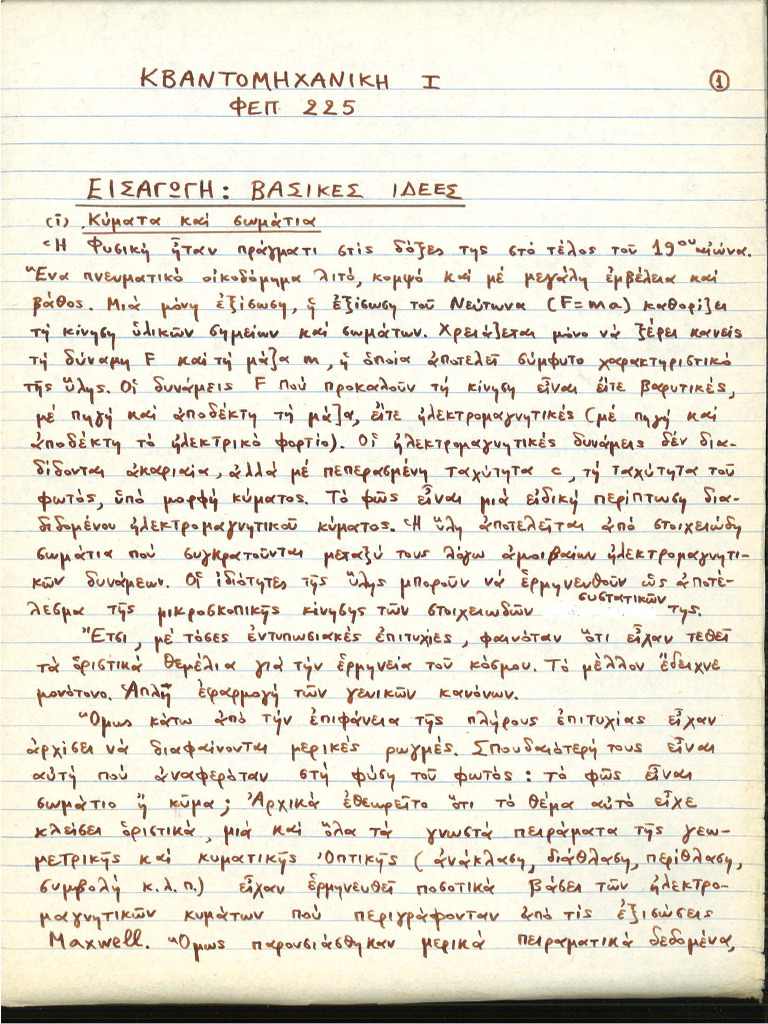 ΚΒΑΝΤΟΜΗΧΑΝΙΚΗ Ι
1
ΦΕΠ 225
ΕΙΣΑΓΩΓΗ: ΒΑΣΙΚΕΣ ΙΔΕΕΣ
(i) Κύματα καί σωμάτια
Ἡ Φυσική ἦταν πράγματι στίς δόξες της στό τέλος τοῦ 19ου αἰώνα.
Ἕνα πνευματικό οἰκοδόμημα λιτό, κομψό καί μέ μεγάλη ἐμβέλεια καί
βάθος. Μιά μόνη ἐξίσωση, ἡ ἐξίσωση τοῦ Νεύτωνα (F=ma) καθορίζει
τή κίνηση ὑλικῶν σημείων καί σωμάτων. Χρειάζεται μόνο νά ξέρει κανείς
τή δύναμη F καί τή μάζα m, ἡ ὁποία ἀποτελεῖ σύμφυτο χαρακτηριστικό
τῆς ὕλης. Οἱ δυνάμεις F πού προκαλοῦν τή κίνηση εἶναι εἴτε βαρυτικές,
μέ πηγή καί ἀποδέκτη τή μάζα, εἴτε ἠλεκτρομαγνητικές (μέ πηγή καί
ἀποδέκτη τό ἠλεκτρικό φορτίο). Οἱ ἠλεκτρομαγνητικές δυνάμεις δέν δια-
δίδονται ἀκαριαία, ἀλλά μέ πεπερασμένη ταχύτητα c, τή ταχύτητα τοῦ
φωτός, ὑπό μορφή κύματος. Τό φῶς εἶναι μιά εἰδική περίπτωση δια-
διδομένου ἠλεκτρομαγνητικοῦ κύματος. Ἡ ὕλη ἀποτελεῖται ἀπό στοιχειώδη
σωμάτια πού συγκρατοῦνται μεταξύ τους λόγω ἀμοιβαίων ἠλεκτρομαγνητι-
κῶν δυνάμεων. Οἱ ἰδιότητες τῆς ὕλης μποροῦν νά ἑρμηνευθοῦν ὡς ἀποτέ-
λεσμα τῆς μικροσκοπικῆς κίνησης τῶν στοιχειωδῶν συστατικῶν της.
Ἔτσι, μέ τόσες ἐντυπωσιακές ἐπιτυχίες, φαινόταν ὅτι εἶχαν τεθεῖ
τά ὁριστικά θεμέλια γιά τήν ἑρμηνεία τοῦ κόσμου. Τό μέλλον ἔδειχνε
μονότονο. Ἁπλή ἐφαρμογή τῶν γενικῶν κανόνων.
Ὅμως κάτω ἀπό τήν ἐπιφάνεια τῆς πλήρους ἐπιτυχίας εἶχαν
ἀρχίσει νά διαφαίνονται μερικές ρωγμές. Σπουδαιότερή τους εἶναι
αὐτή πού ἀναφερόταν στή φύση τοῦ φωτός: τό φῶς εἶναι
σωμάτιο ἤ κῦμα; Ἀρχικά ἐθεωρεῖτο ὅτι τό θέμα αὐτό εἶχε
κλείσει ὁριστικά, μιά καί ὅλα τά γνωστά πειράματα τῆς γεω-
μετρικῆς καί κυματικῆς Ὀπτικῆς (ἀνάκλαση, διάθλαση, περίθλαση,
συμβολή κ.λ.π.) εἶχαν ἑρμηνευθεῖ ποσοτικά βάσει τῶν ἠλεκτρο-
μαγνητικῶν κυμάτων πού περιγράφονταν ἀπό τίς ἐξισώσεις
Maxwell. Ὅμως παρουσιάσθηκαν μερικά πειραματικά δεδομένα,